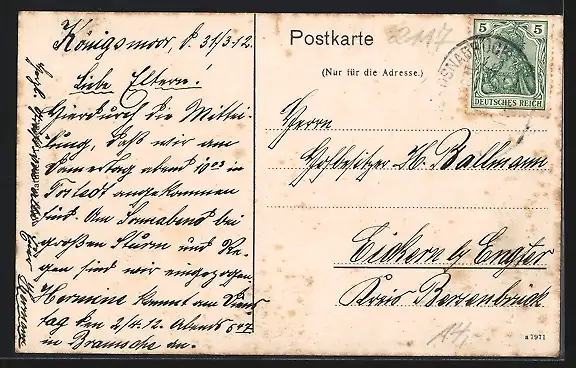 Königsmoor, d. 31/3.12.
Liebe Eltern!
Hierdurch die Mittei-
lung, daß wir am
Donnerstag abend 10 03 in
Tostedt angekommen
sind. Am Sonnabend bei
großen Sturm und Re-
gen sind wir eingezogen.
Hermine kommt am Diens
tag den 2/4.12. Abends 5 47
in Bramsche an.
Herzl. Grüße
Postkarte
(Nur für die Adresse.)
2117
5 5
DEUTSCHES REICH
OSNABRÜCK
Herrn
Hofbesitzer H. Ballmann
Eickern b. Engter
Kreis Bersenbrück
14,-
a 7971